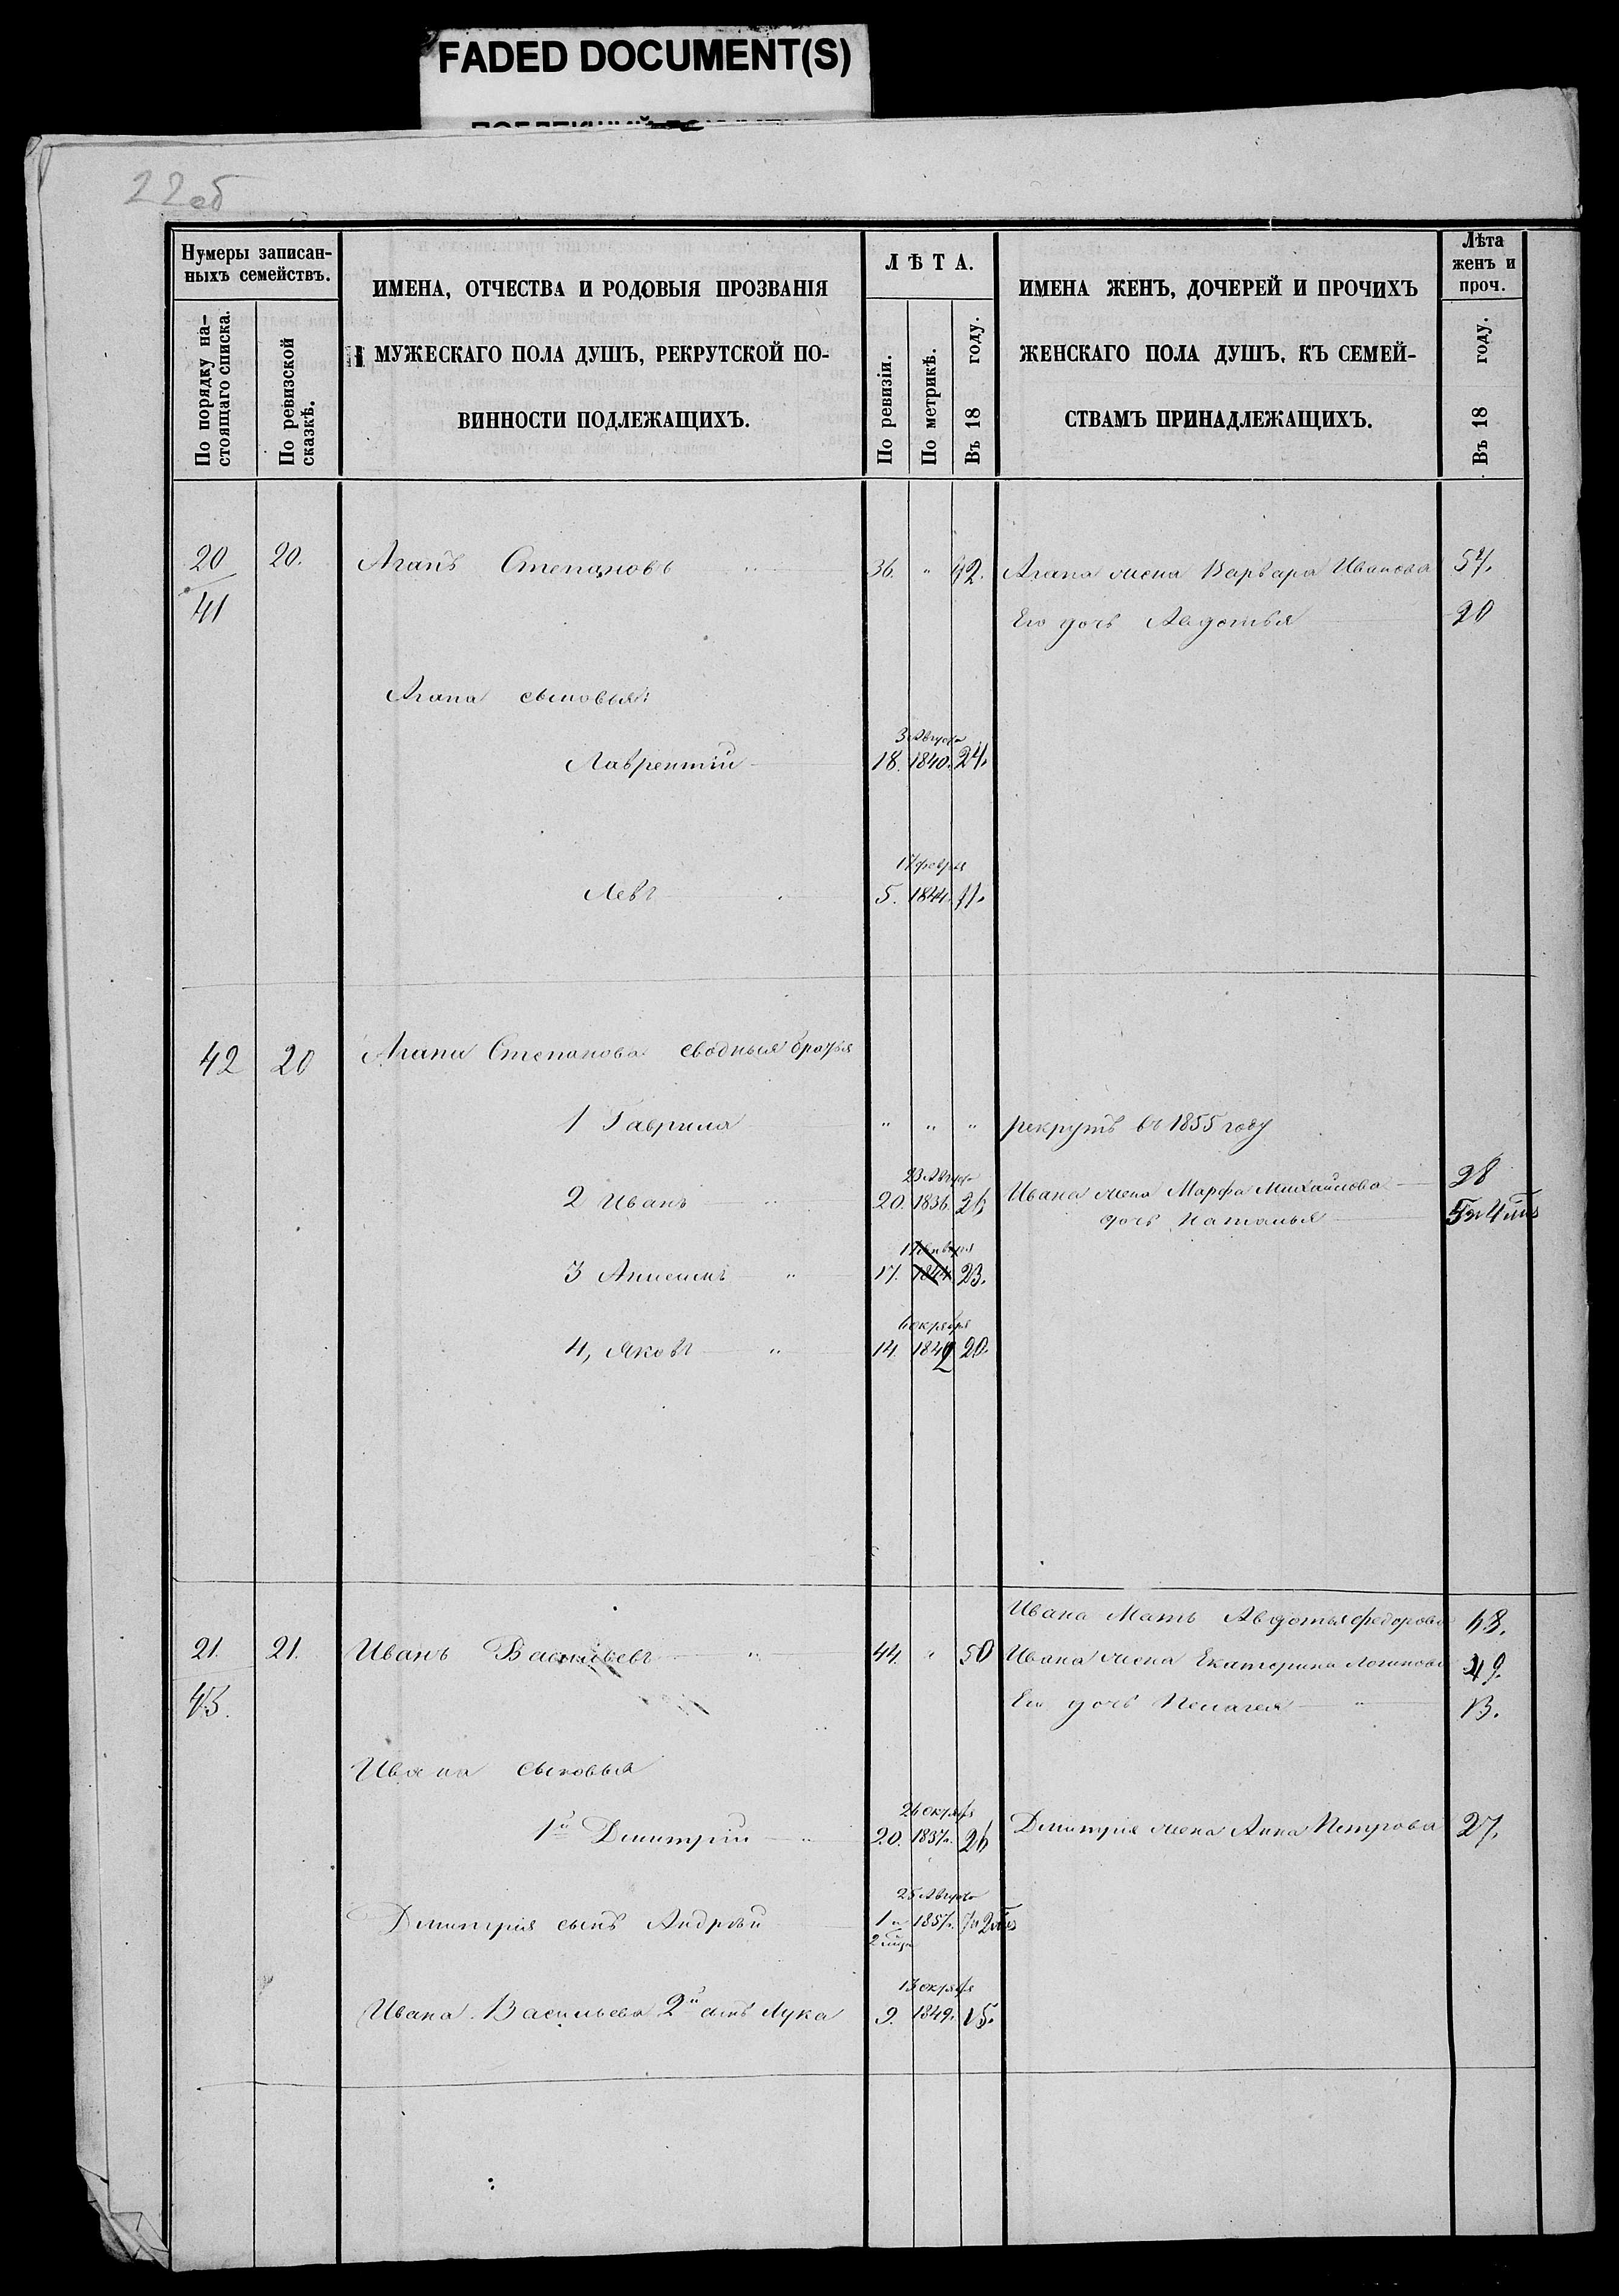 FADED DOCUMENT(S)
22об
Нумеры записан-
ныхъ семействъ.
По порядку на-
стоящаго списка.
По ревизской
сказкѣ.
ИМЕНА, ОТЧЕСТВА И РОДОВЫЯ ПРОЗВАНІЯ
МУЖЕСКАГО ПОЛА ДУШЪ, РЕКРУТСКОЙ ПО-
ВИННОСТИ ПОДЛЕЖАЩИХЪ.
ЛѢТА.
По ревизіи.
По метрикѣ.
Въ 18 году.
ИМЕНА ЖЕНЪ, ДОЧЕРЕЙ И ПРОЧИХЪ
ЖЕНСКАГО ПОЛА ДУШЪ, КЪ СЕМЕЙ-
СТВАМЪ ПРИНАДЛЕЖАЩИХЪ.
Лѣта
женъ и
проч.
Въ 18 году.
20 20. Агапъ Степановъ " 36. " 42. Агапа жена Варвара Иванова 54.
41 Его дочь Авдотья 20
Агапа сыновья:
3 Августа
Лаврентій 18. 1840. 24.
17 февраля
Левъ 5. 1844. 11.
42 20 Агапа Степанова сводныя братья
1 Гаврила " " " рекрутъ въ 1855 году
23 Августа
2 Иванъ 20. 1836. 26 Ивана жена Марфа Михайлова 28
дочь Наталья
17 января
3 Анисимъ " 17. 1844 23.
6 октября
4, Яковъ " 14. 1842 20.
Ивана Мать Авдотья Федорова 68.
21. 21. Иванъ Васильевъ " 44. " 50 Ивана жена Екатерина Логинова 49.
43. Его дочь Пелагея " 13.
Ивана сыновья
26 октября
1й Дмитрій " 20. 1837. 26 Дмитрія жена Анна Петрова 27.
25 Августа
Дмитрія сынъ Андрѣй 1 1857.
13 октября
Ивана Васильева 2й сынъ Лука 9. 1849. 15.